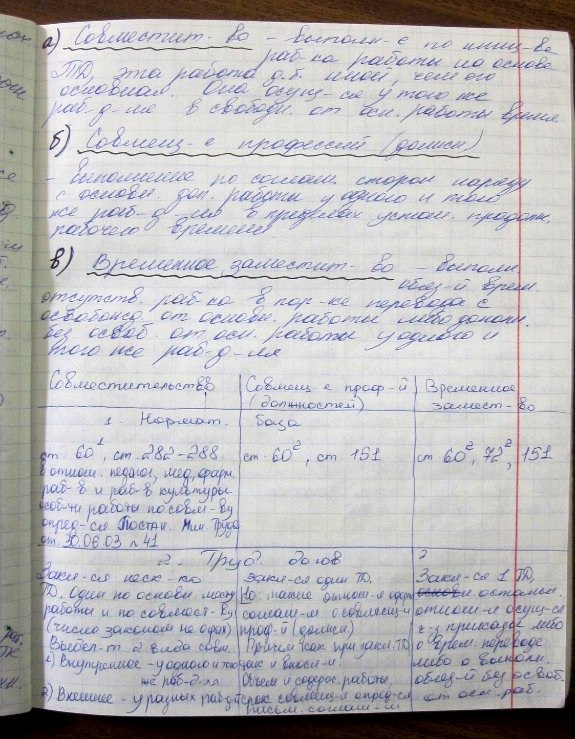 а) Совместит-во – выполн-е по иниц-ве
раб-ка работы на основе
ТД, эта работа д.б. иной, чем его
основная. Она осущ-ся у того же
раб-д-ля в свободн. от осн. работы время
б) Совмещ-е профессий (должн.)
– выполнение по соглаш. сторон наряду
с основн. доп. работы у одного и того
же раб-д-ля в пределах устан. продолж.
рабочего времени
в) Временное заместит-во – выполн.
обяз-й врем.
отсутств. раб-ка в пор-ке перевода с
освобожд. от основн. работы либо дополн.
без освоб. от осн. работы у одного и
того же раб-д-ля
Совместительство
Совмещ-е проф-й
(должностей)
Временное
замест-во
1. Нормат. база
ст. 60¹, ст. 282-288
в отнош. педагог., мед., фарм.
раб-в и раб-в культуры
особ-ти работы по совм-ву
опред-ся Постан. Мин. Труда
от 30.06.03 №41
ст. 60², ст. 151
ст 60², 72², 151
2. Труд. догов
2
Закл-ся неск-ко
ТД. Один по основн. месту
работы и по совмест-ву
(число законом не огр)
Выдел-т 2 вида совм.
1) Внутреннее – у одного и того
же раб-д-ля
2) Внешнее – у разных раб-д
закл-ся один ТД.
но также
соглаш-м о совмещ-и
проф-й (должн.)
Причем как при закл. ТД
Объем и содерж. работы,
срок совмещ-я опред-ся
письм. соглаш-м
Закл-ся 1 ТД,
остальн.
отнош-я осущ-ся
ч-з приказ либо
о врем. переводе
либо о выполн.
обяз-й без освоб.
от осн. раб.